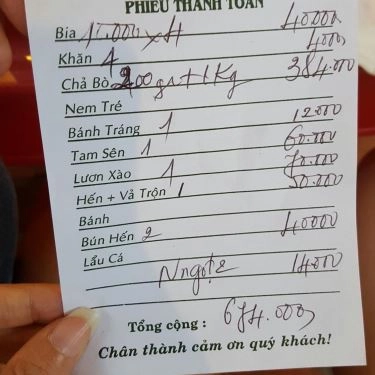 PHIẾU THANH TOÁN
Bia 10.000 x 4 40000
Khăn 4 4000
Chả Bò 200 gr + 1 Kg 384.000
Nem Tré
Bánh Tráng 1 12000
Tam Sên 1 60.000
Lươn Xào 1 70.000
Hến + Vả Trộn 1 50.000
Bánh
Bún Hến 2 40000
Lẩu Cá
Nngọt 2 14000
Tổng cộng : 674.000
Chân thành cảm ơn quý khách!